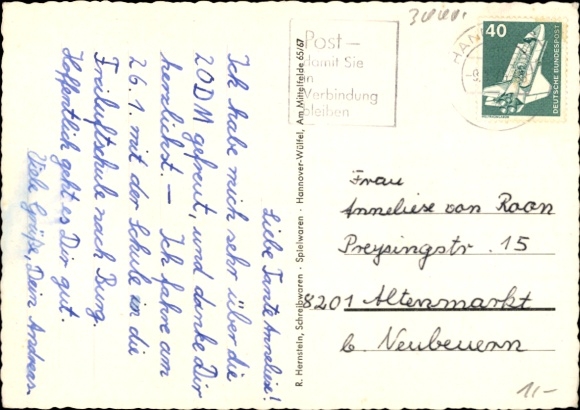 Liebe Tante Anneliese!
Ich habe mich sehr über die
20DM gefreut, und danke Dir
herzlichst. — Ich fahre am
26.1. mit der Schule in die
Freiluftschule nach Burg.
Hoffentlich geht es Dir gut.
Viele Grüße, Dein Andreas
R. Hernstein, Schreibwaren - Spielwaren - Hannover-Wülfel, Am Mittelfelde 65/67
Post —
damit Sie
in
Verbindung
bleiben
HAN
-9.
40
DEUTSCHE BUNDESPOST
Frau
Anneliese von Roon
Preysingstr. 15
8201 Altenmarkt
b. Neubeuern
1,-